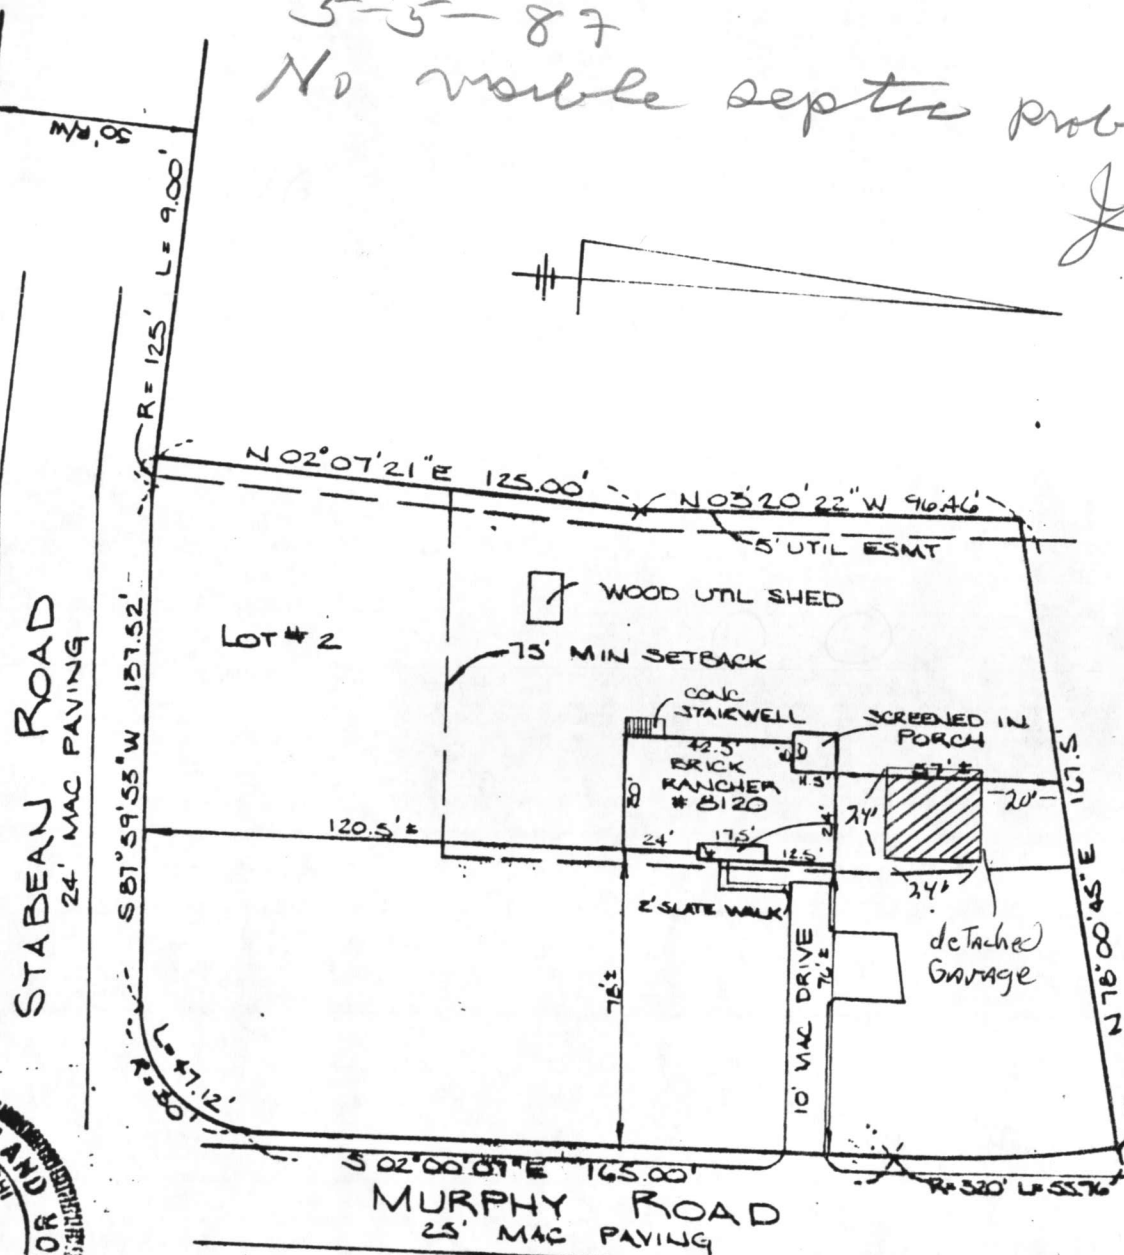 5-5-87
No visible septic prob
50' R/W
R= 125' L= 9.00'
N 02°07'21"E 125.00'
N 03°20'22"W 96.46'
5' UTIL ESMT
WOOD UTIL SHED
LOT # 2
75' MIN SETBACK
CONC
STAIRWELL
SCREENED IN
PORCH
42.5'
BRICK
RANCHER
# 8120
11.5'
57'±
20'
24'
24'
120.5'±
24'
17.5'
12.5'
2' SLATE WALK
detached
GARAGE
78'±
76'±
10' MAC DRIVE
S 87°59'53"W 137.52'
STABEAN ROAD
24' MAC PAVING
167.5'
N 78°00'45"E
L=47.12'
R=30'
S 02°00'07"E 165.00'
R=320' L=55.76'
MURPHY ROAD
25' MAC PAVING
AND
OR